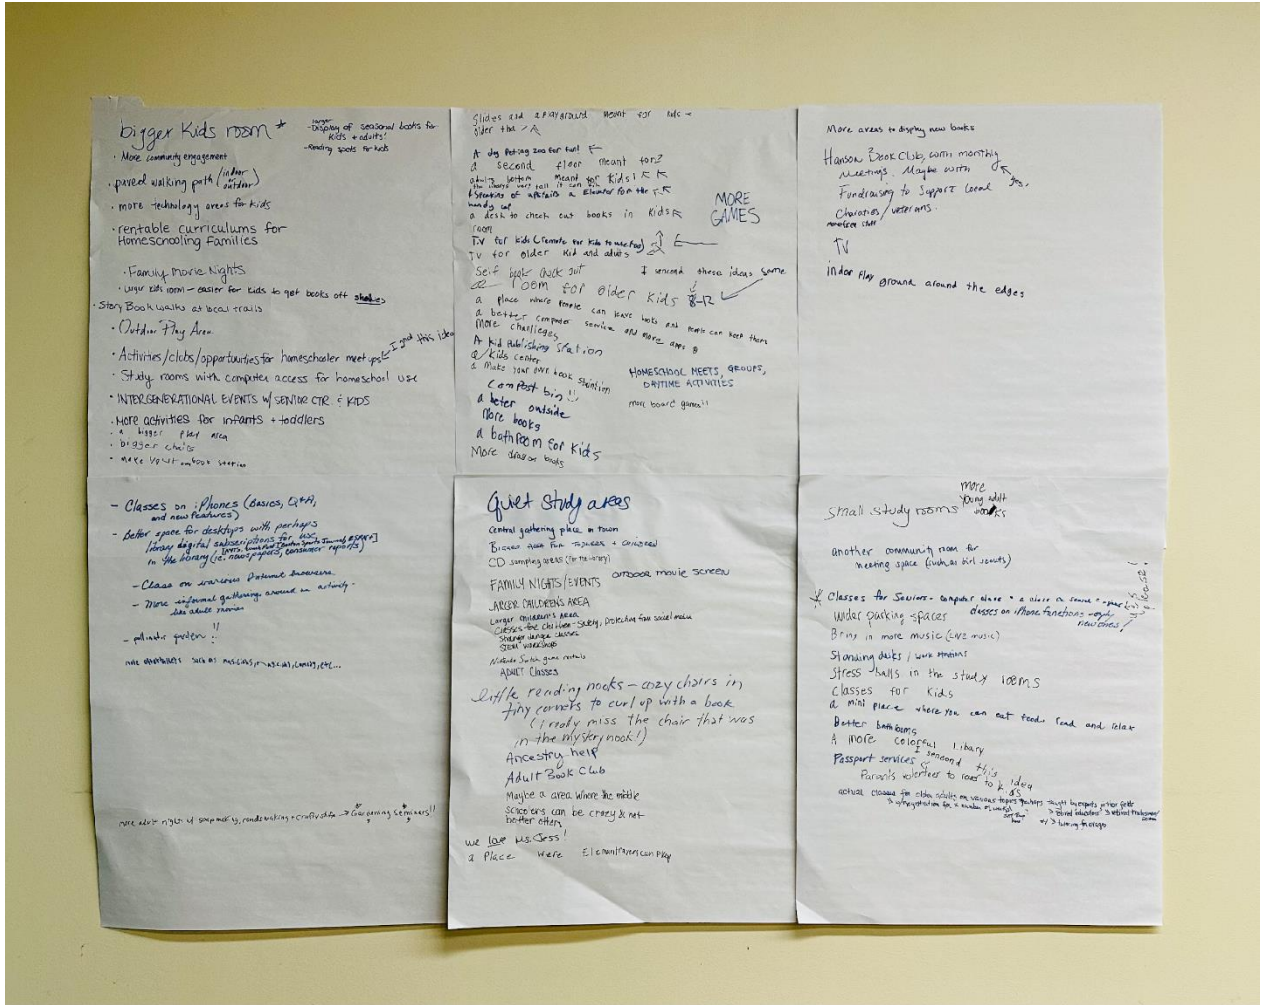 bigger Kids room *
larger
-Display of seasonal books for
Kids + adults!
-Reading spots for kids
• More community engagement
• paved walking path (indoor or outdoor)
• more technology areas for kids
• rentable curriculums for
Homeschooling Families
• Family Movie Nights
• Larger kids room - easier for kids to get books off shelves
• Story Book walks at local trails
• Outdoor Play Area
• Activities/clubs/opportunities for homeschooler meet ups
I 2nd this idea
• Study rooms with computer access for homeschool use
• INTERGENERATIONAL EVENTS W/ SENIOR CTR. & KIDS
• More activities for infants + toddlers
• a bigger play area
• bigger chairs
• make your own book station
Slides and a playground meant for kids
older than
A dog Petting zoo for fun!
a second floor meant for?
bottom meant for kids
Speaking of upstairs a Elevator for the
handy cap
a desk to check out books in kids
room
MORE
GAMES
TV for kids (remote for kids to use too)
TV for older kid and adults
Self book check out
I sencond these ideas some
a room for older kids 8-12
a place where people can leave books and people can keep them
a better computer service and more apps
More challeges
A kid Publishing Station
a kids center
a make your own book station
HOMESCHOOL MEETS, GROUPS,
DAYTIME ACTIVITIES
Compost bin!!
more board games!!
a beter outside
More books
a bathroom for kids
More dragon books
More areas to display new books
Hanson Book Club, with monthly
Meetings. Maybe with
yes.
Fundraising to Support Local
Charaties / veterans.
more free stuff
TV
indor play ground around the edges
- Classes on iPhones (Basics, Q+A,
and new features)
- Better space for desktops with perhaps
library digital subscriptions for use
in the library (ie. newspapers, consumer reports)
- Class on various Internet browsers
- More informal gatherings around an activity -
like adult movies
- pollinator garden!!
more adult nights of soap making, candlemaking + crafty stuff → Gardening Seminars!!
Quiet Study areas
Central gathering place in town
CD sampling areas (For the library)
FAMILY NIGHTS/EVENTS OUTDOOR movie SCREEN
LARGER CHILDREN'S AREA
Larger children's Area
Classes for children - Safety, protection from social media
Stranger danger classes
STEM workshops
Nintendo Switch game rentals
ADULT Classes
little reading nooks - cozy chairs in
tiny corners to curl up with a book
(I really miss the chair that was
in the mystery nook!)
Ancestry help
Adult Book Club
Maybe a area where the middle
scoolers can be crazy & not
bother others
we love Ms. Jess!
a Place were
more
young adult
books
Small study rooms
another community room for
meeting space (such as Girl Scouts)
* Classes for Seniors - computer
classes on iPhone functions
new ones!
yes please!
wider parking spaces
Bring in more music (LIVE music)
Standing desks / work stations
Stress balls in the study rooms
Classes for kids
a mini place where you can eat food read and relax
Better bathrooms
A more colorful Libary
I sencond this idea
Passport services
actual classes for older adults on various topics perhaps taught by experts in their fields